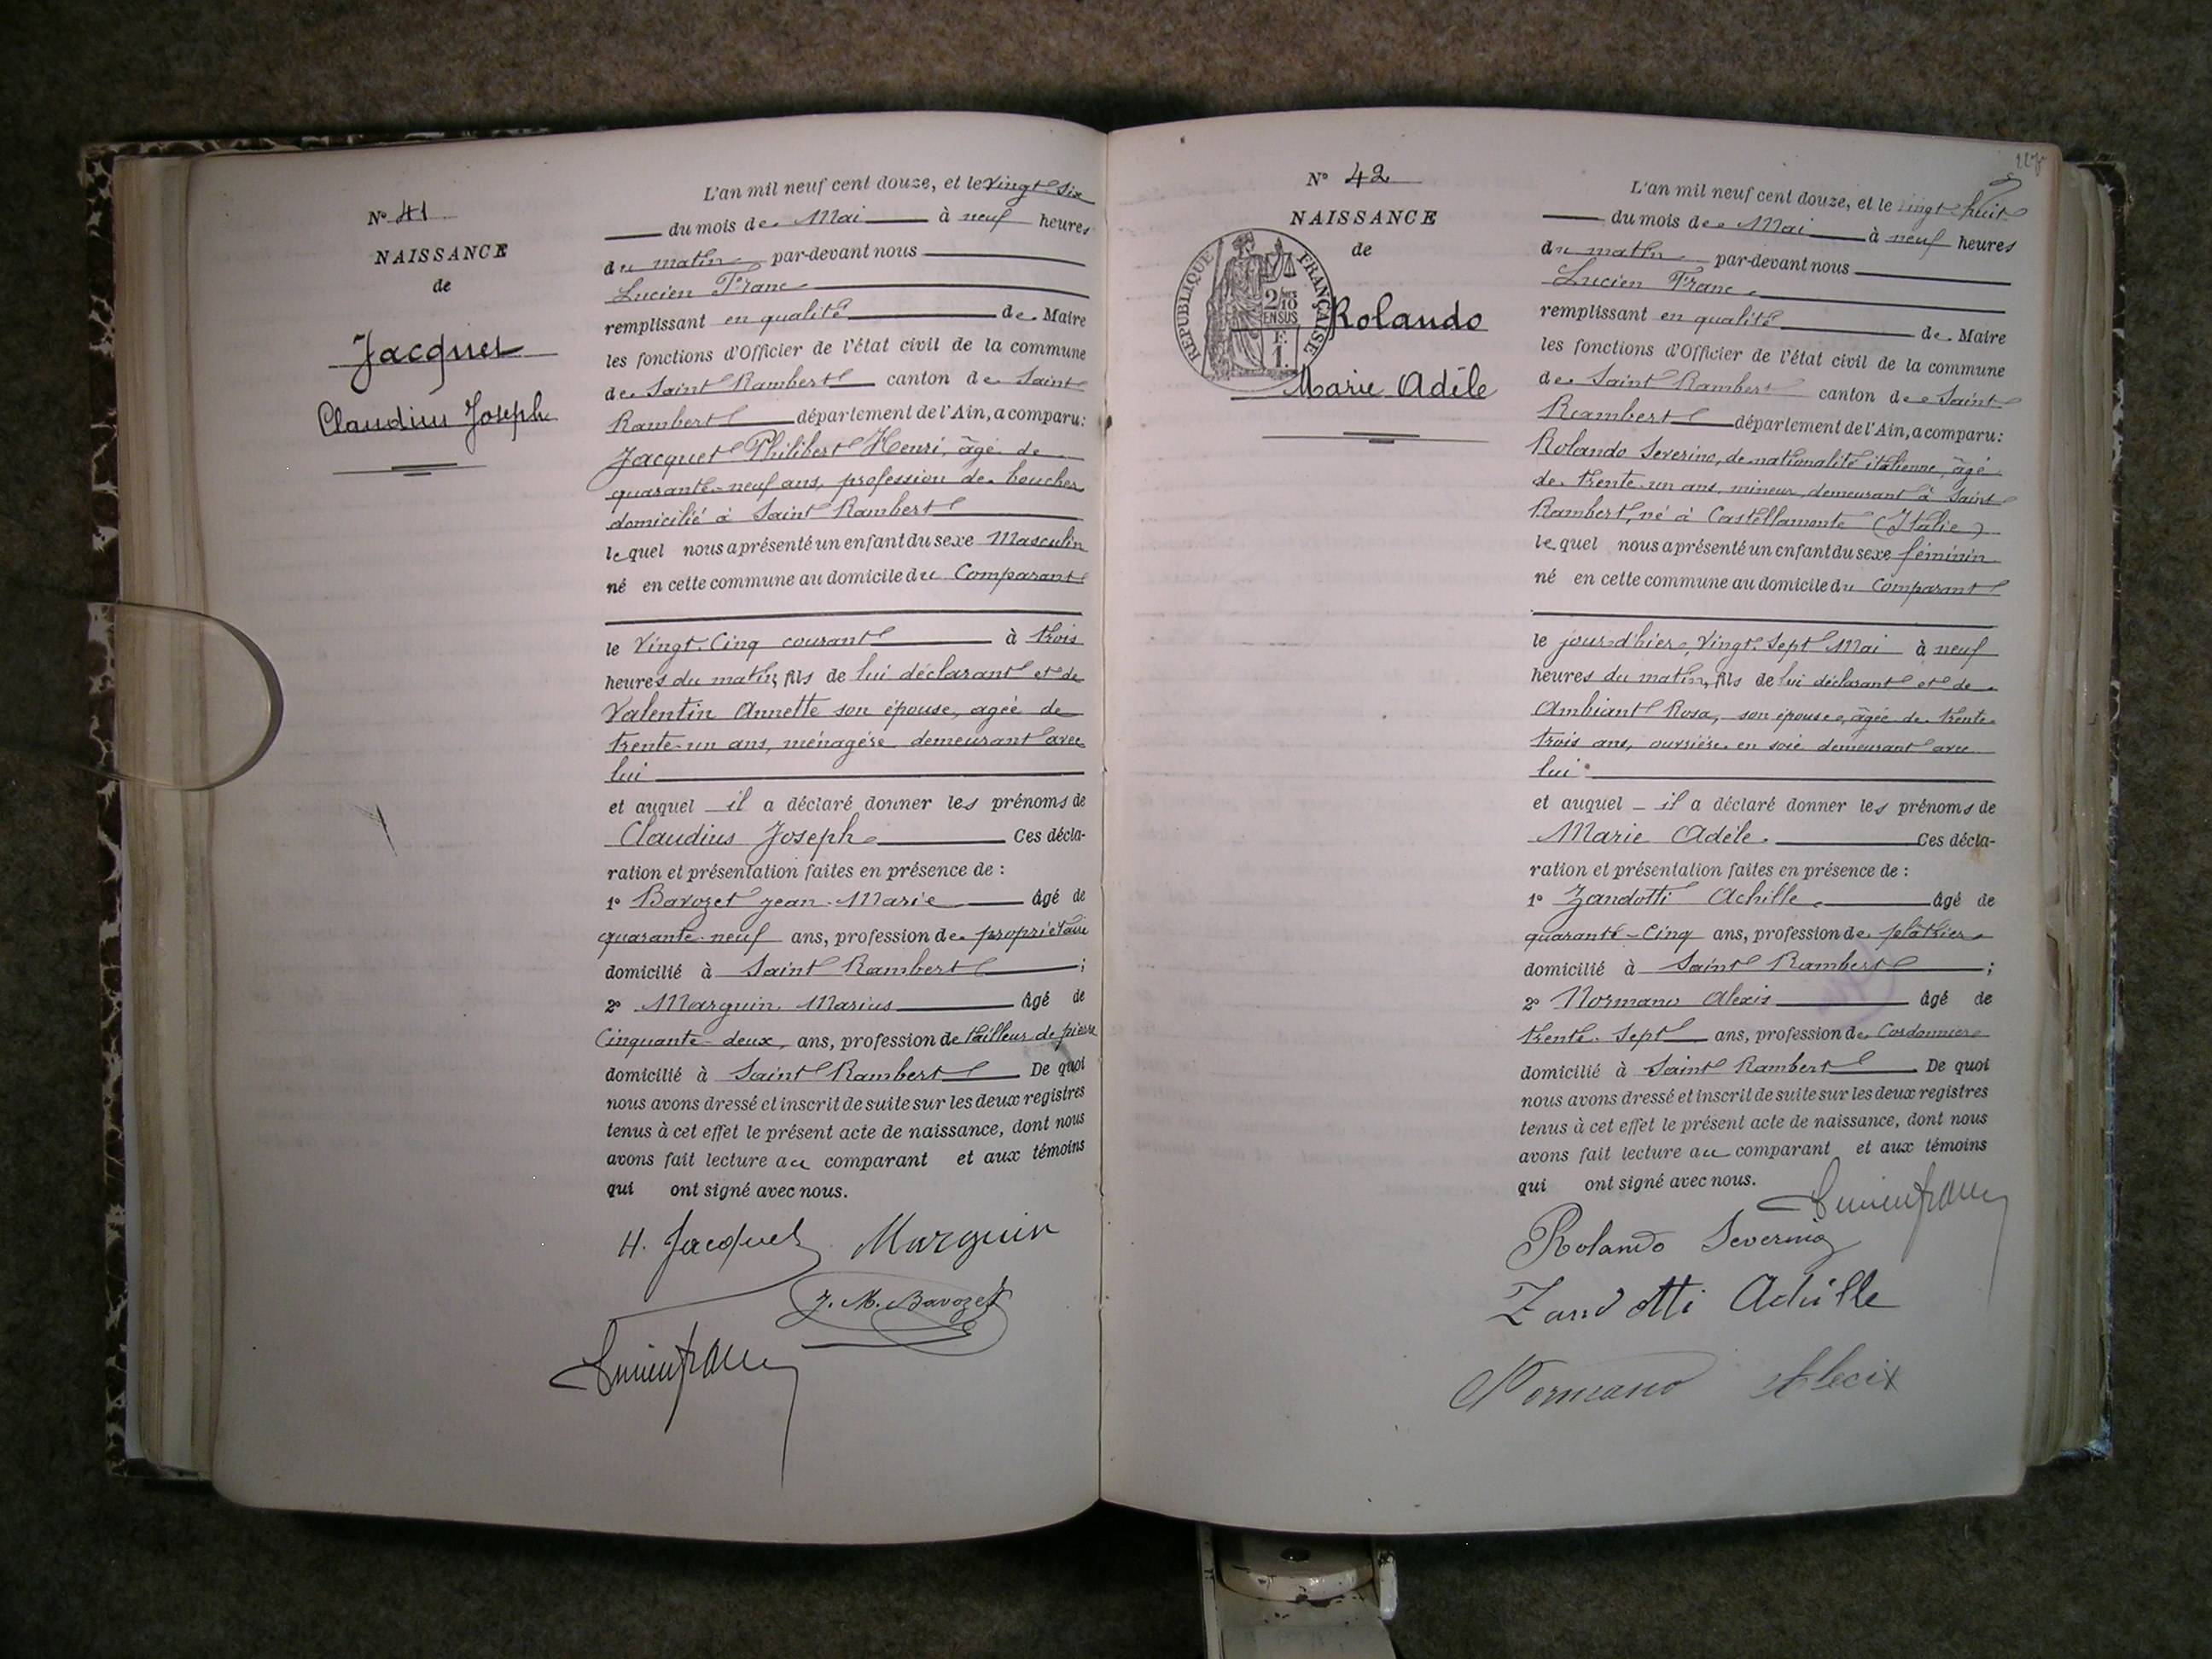 N° 41
NAISSANCE
de
Jacquet
Claudius Joseph
L'an mil neuf cent douze, et le vingt six
du mois de Mai à neuf heures
du matin par-devant nous
Lucien Franc
remplissant en qualité de Maire
les fonctions d'Officier de l'état civil de la commune
de Saint Rambert canton de Saint
Rambert département de l'Ain, a comparu:
Jacquet Philibert Henri, âgé de
quarante-neuf ans, profession de boucher
domicilié à Saint Rambert
lequel nous a présenté un enfant du sexe Masculin
né en cette commune au domicile du Comparant
le Vingt-Cinq courant à trois
heures du matin, fils de lui déclarant et de
Valentin Annette son épouse, agée de
trente-un ans, ménagère demeurant avec
lui
et auquel il a déclaré donner les prénoms de
Claudius Joseph Ces décla-
ration et présentation faites en présence de :
1° Bavozet jean-Marie Agé de
quarante-neuf ans, profession de propriétaire
domicilié à Saint Rambert ;
2° Marguin Marius Agé de
Cinquante-deux ans, profession de tailleur de pierre
domicilié à Saint Rambert De quoi
nous avons dressé et inscrit de suite sur les deux registres
tenus à cet effet le présent acte de naissance, dont nous
avons fait lecture au comparant et aux témoins
qui ont signé avec nous.
H. Jacquet Marguin
J. M. Bavozet
Lucien Franc
N° 42
NAISSANCE
de
RÉPUBLIQUE FRANÇAISE
2/10
EN SUS
F.
1.
Rolando
Marie Adèle
L'an mil neuf cent douze, et le vingt huit
du mois de Mai à neuf heures
du matin par-devant nous
Lucien Franc
remplissant en qualité de Maire
les fonctions d'Officier de l'état civil de la commune
de Saint Rambert canton de Saint
Rambert département de l'Ain, a comparu:
Rolando Severino, de nationalité italienne, âgé
de trente-un ans, mineur, demeurant à Saint
Rambert, né à Castellamonte (Italie)
lequel nous a présenté un enfant du sexe féminin
né en cette commune au domicile du Comparant
le jour d'hier, Vingt-Sept Mai à neuf
heures du matin, fils de lui déclarant et de
Ambiant Rosa, son épouse, âgée de trente
trois ans, ouvrière en soie demeurant avec
lui
et auquel il a déclaré donner les prénoms de
Marie Adèle. Ces décla-
ration et présentation faites en présence de :
1° Zandotti Achille Agé de
quarante-Cinq ans, profession de plâtrier
domicilié à Saint Rambert ;
2° Normano Alexis Agé de
trente-Sept ans, profession de Cordonnier
domicilié à Saint Rambert De quoi
nous avons dressé et inscrit de suite sur les deux registres
tenus à cet effet le présent acte de naissance, dont nous
avons fait lecture au comparant et aux témoins
qui ont signé avec nous.
Lucien Franc
Rolando Severino
Zandotti Achille
Normano Alecix